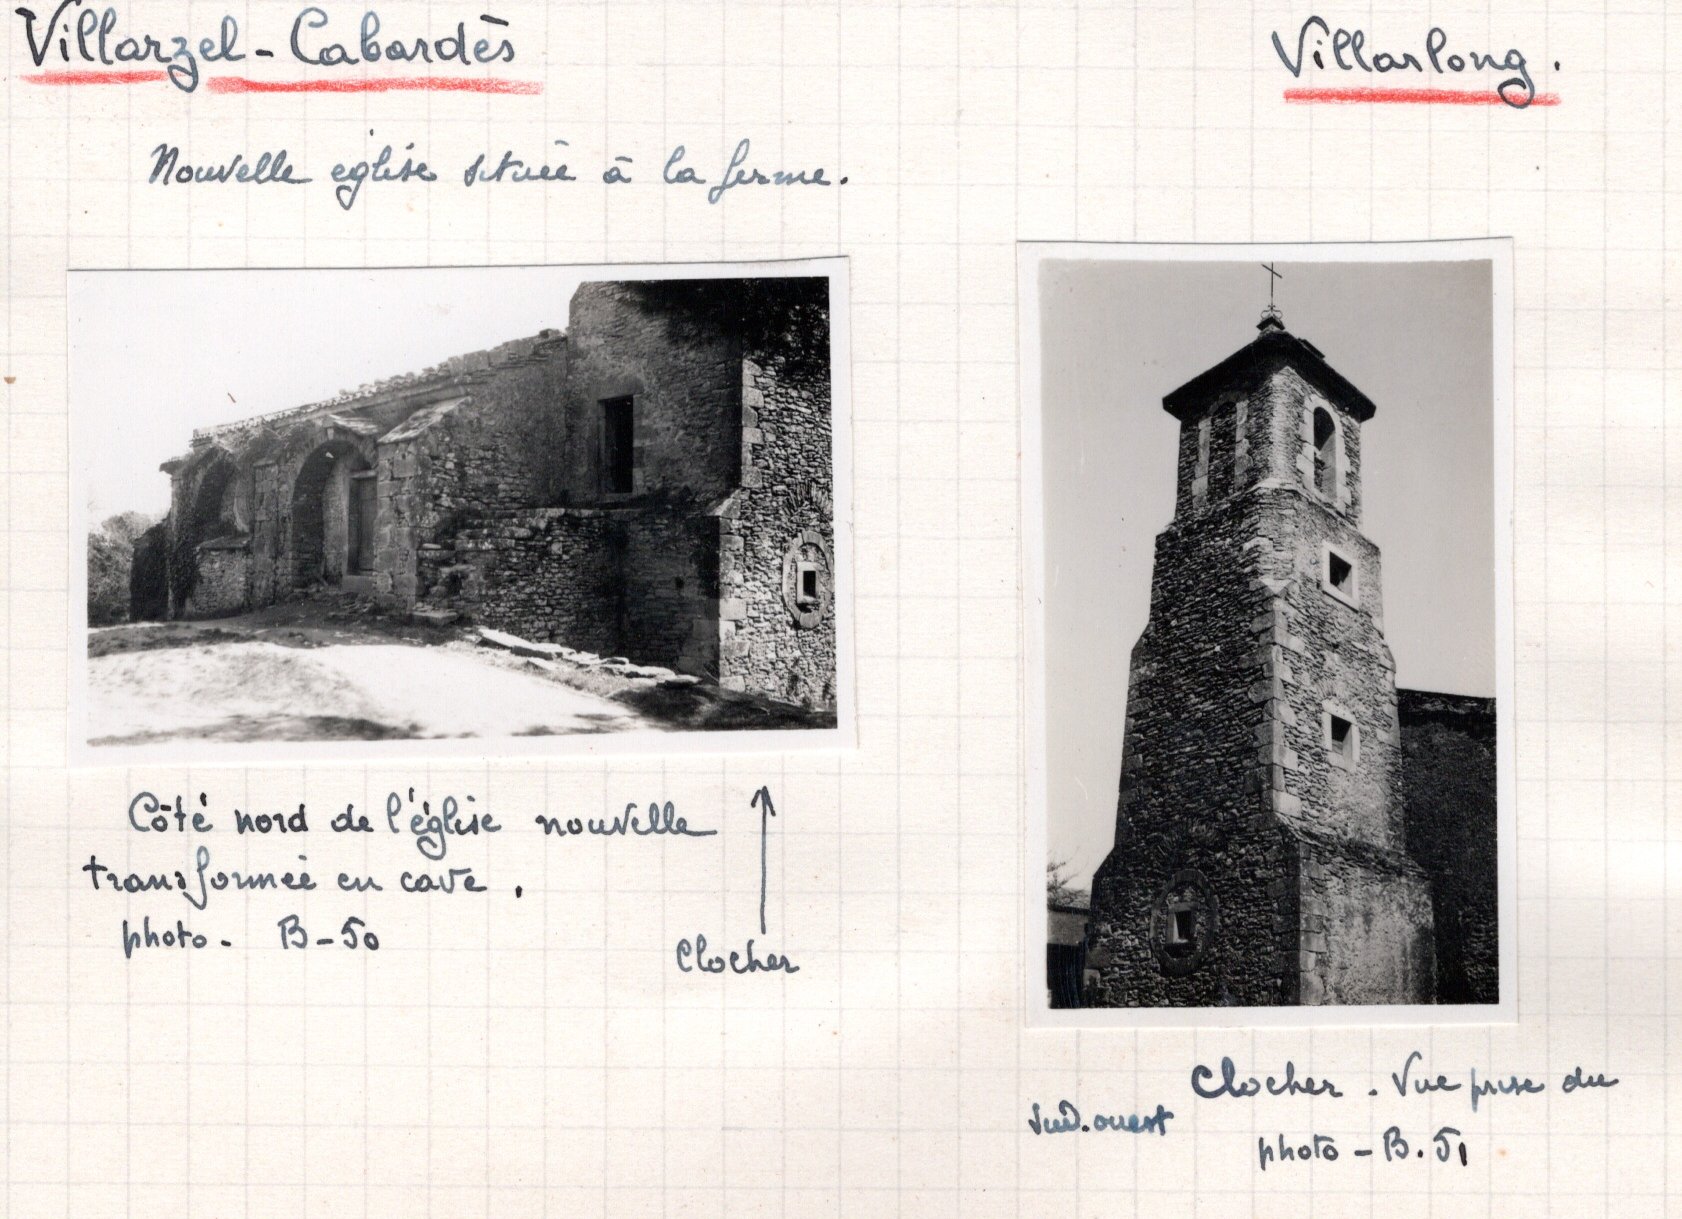 Villarzel-Cabardès
Villarlong.
Nouvelle église située à la ferme.
Côté nord de l'église nouvelle
transformée en cave.
photo - B-50
Clocher
Clocher. Vue prise du
sud.ouest
photo - B.51